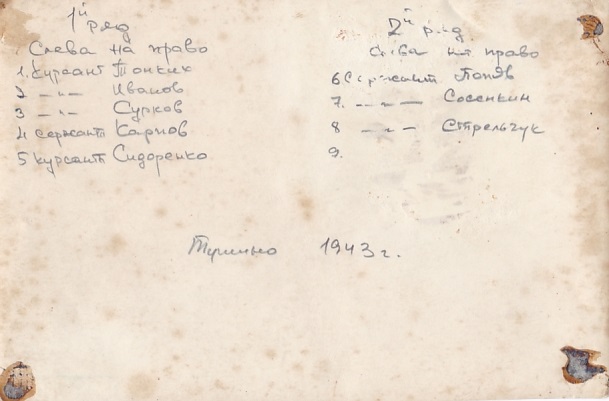 1й ряд
Слева на право
1. Курсант Тонких
2 —"— Иванов
3 —"— Сурков
4 сержант Карпов
5 курсант Сидоренко
2й ряд
Слева на право
6 Сержант
7. —"— Сосенкин
8 —"— Стрельчук
9.
Тушино 1943 г.